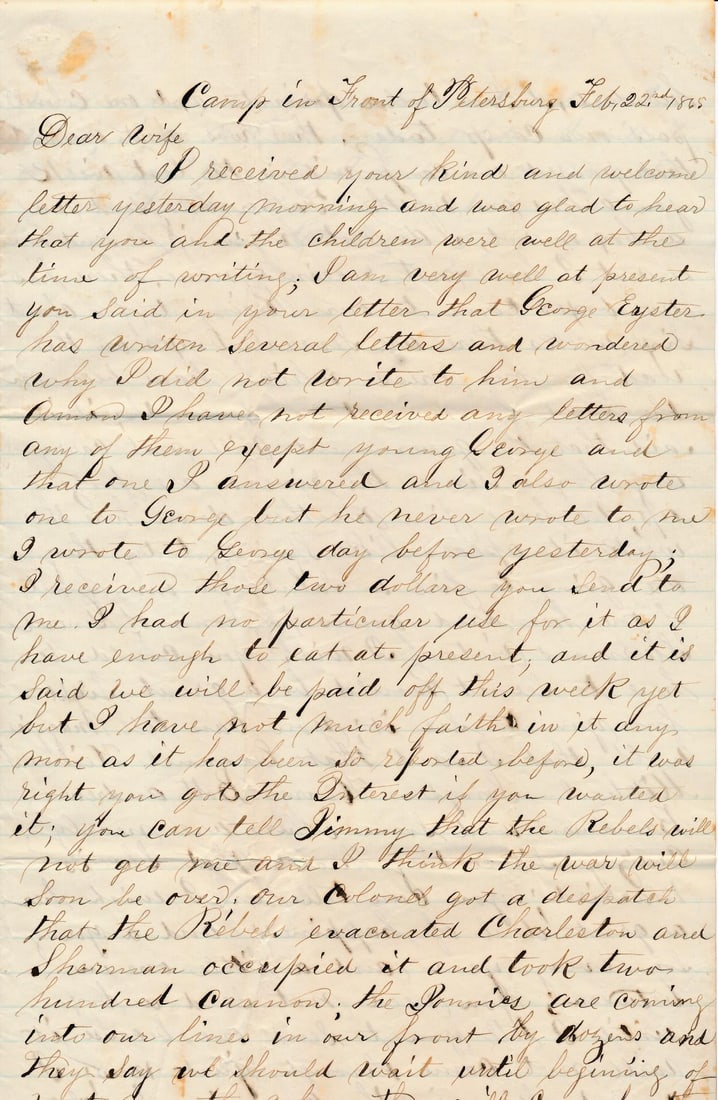 Camp in Front of Petersburg Feb, 22nd 1865
Dear Wife
I received your kind and welcome
letter yesterday morning and was glad to hear
that you and the children were well at the
time of writing; I am very well at present
you said in your letter that George Eyster
has writen several letters and wondered
why I did not write to him and
Amon I have not received any letters from
any of them except young George and
that one I answered and I also wrote
one to George but he never wrote to me
I wrote to George day before yesterday;
I received those two dollars you send to
me. I had no particular use for it as I
have enough to eat at present, and it is
said we will be paid off this week yet
but I have not much faith in it any
more as it has been so reported before, it was
right you got the Interest if you wanted
it; you can tell Jimmy that the Rebels will
not get me and I think the war will
soon be over. our Colonel got a despatch
that the Rebels evacuated Charleston and
Sherman occupied it and took two
hundred cannon. the Jonnies are coming
into our lines in our front by dozens and
they say we should wait until begining of